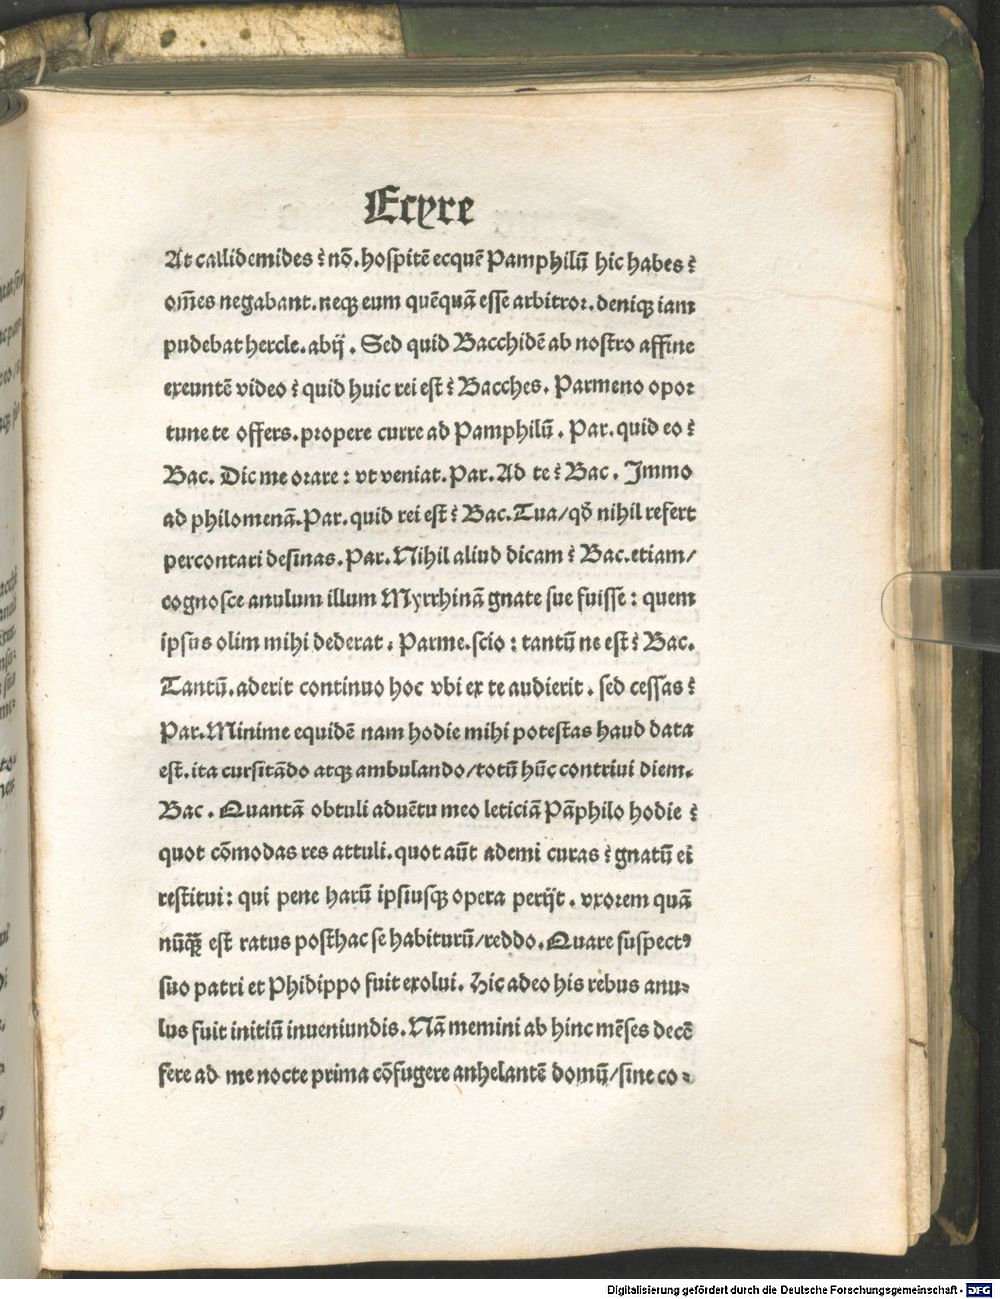 Ecyre
At callidemides? nō. hospitē ecquē Pamphilū hic habes?
om̄es negabant. neqꝫ eum quēquā esse arbitror. deniqꝫ iam
pudebat hercle. abij. Sed quid Bacchidē ab nostro affine
exeuntē video? quid huic rei est? Bacches. Parmeno opor
tune te offers. propere curre ad Pamphilū. Par. quid eo?
Bac. Dic me orare: vt veniat. Par. Ad te? Bac. Immo
ad philomenā. Par. quid rei est? Bac. Tua/qō nihil refert
percontari desinas. Par. Nihil aliud dicam? Bac. etiam/
cognosce anulum illum Myrrhinā gnate sue fuisse: quem
ipsus olim mihi dederat. Parme. scio: tantū ne est? Bac.
Tantū. aderit continuo hoc vbi ex te audierit. sed cessas?
Par. Minime equidē nam hodie mihi potestas haud data
est. ita cursitādo atqꝫ ambulando/totū hūc contriui diem.
Bac. Quantā obtuli aduētu meo leticiā Pāphilo hodie?
quot cōmodas res attuli. quot aūt ademi curas? gnatū ei
restitui: qui pene harū ipsiusqꝫ opera perijt. vxorem quā
nūqꝫ̄ est ratus posthac se habiturū/reddo. Quare suspectꝰ
suo patri et Phidippo fuit exolui. Hic adeo his rebus anu-
lus fuit initiū inueniundis. Nā memini ab hinc mēses decē
fere ad me nocte prima cōfugere anhelantē domū/sine co-
Digitalisierung gefördert durch die Deutsche Forschungsgemeinschaft - DFG